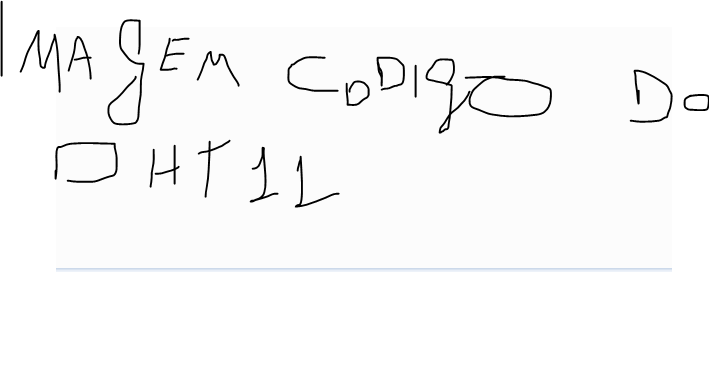 IMAGEM CODIGO DO
O HT1L